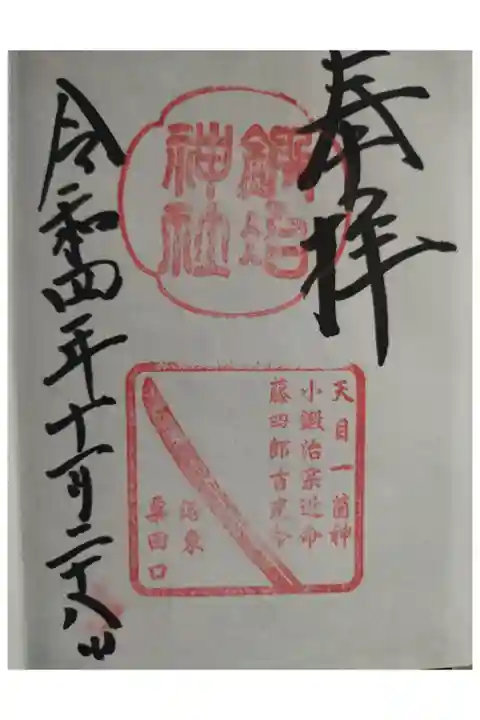 奉拝
鍛冶
神社
天目一箇神
小鍛治宗近命
藤四郎吉光命
洛東
粟田口
令和四年十一月二十八日